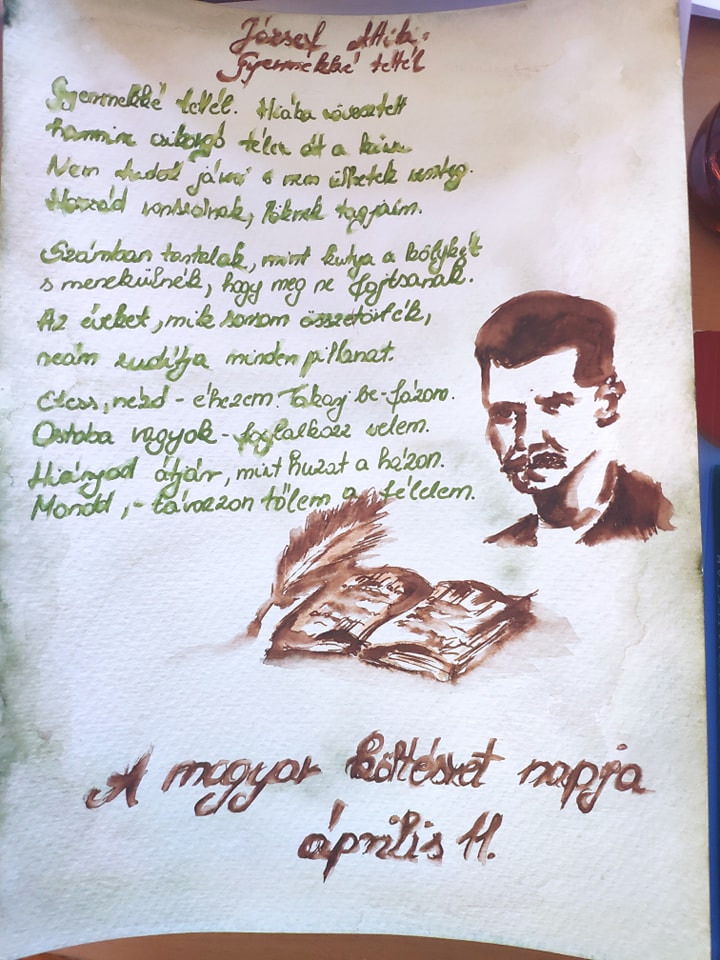 József Attila:
Gyermekké tettél
Gyermekké tettél. Hiába növesztett
harminc csikorgó télen át a kín.
Nem tudok járni s nem ülhetek veszteg.
Hozzád vonszolnak, löknek tagjaim.
Számban tartalak, mint kutya a kölykét
s menekülnék, hogy meg ne fojtsanak.
Az éveket, mik sorsom összetörték,
reám zudítja minden pillanat.
Etess, nézd - éhezem. Takarj be - fázom.
Ostoba vagyok - foglalkozz velem.
Hiányod átjár, mint huzat a házon.
Mondd, - távozzon tőlem a félelem.
A magyar költészet napja
április 11.